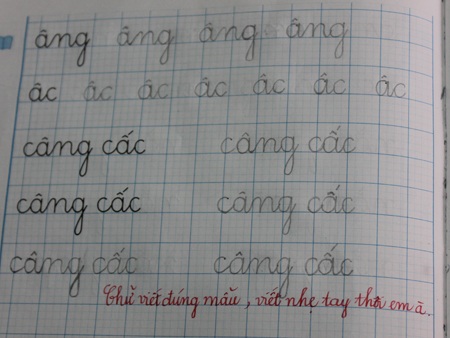 âng âng âng âng
âc âc âc âc âc âc âc
câng cấc câng cấc
câng cấc câng cấc
câng cấc câng cấc
Chữ viết đúng mẫu, viết nhẹ tay thôi em ã.